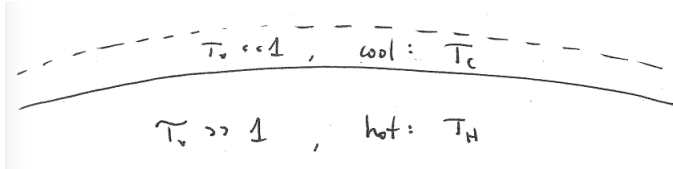 τᵥ << 1 , cool : T_C
τᵥ >> 1 , hot : T_H